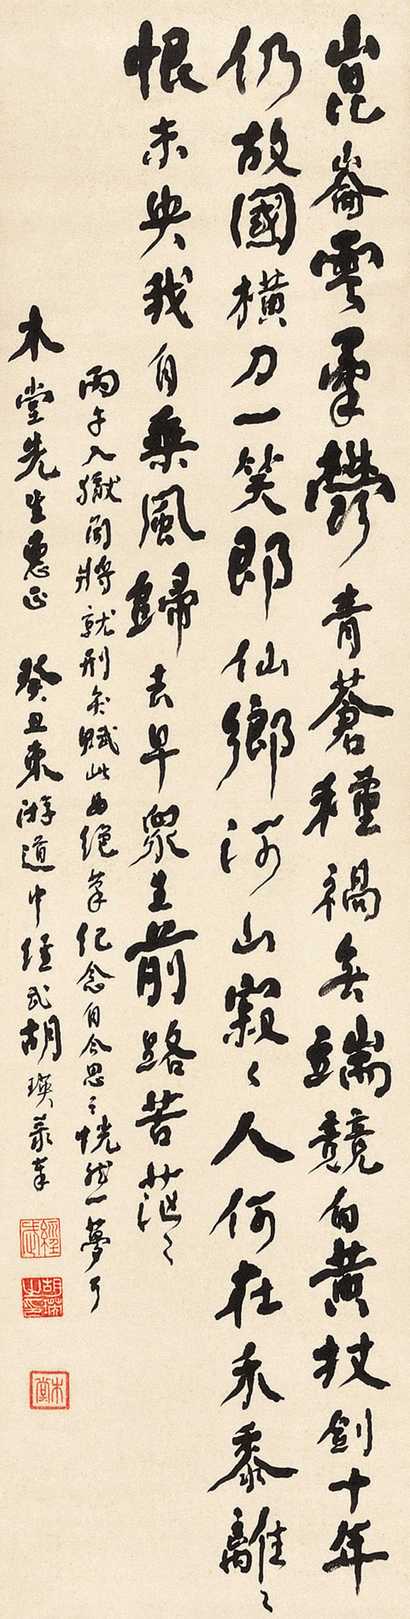 崑崙雲氣鬱青蒼種禍無端競白黃杖劍十年
仍故國橫刀一笑即仙鄉河山寂〻人何在禾黍離〻
恨未央我自乘風歸去早眾生前路苦茫〻
丙午入獄聞將就刑矣賦此為絕筆紀念自今思之恍然一夢耳
木堂先生惠正 癸丑東游道中經武胡瑛
經武
胡瑛之印
木堂